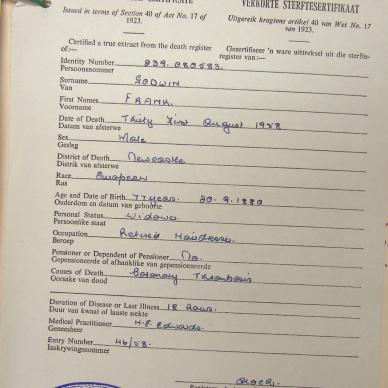 VERKORTE STERFTESERTIFIKAAT
Issued in terms of Section 40 of Act No. 17 of 1923.
Uitgereik kragtens artikel 40 van Wet No. 17 van 1923.
Certified a true extract from the death register of:—
Gesertifiseer 'n ware uittreksel uit die sterfteregister van:—
Identity Number
Persoonsnommer
Surname GODWIN
Van
First Names FRANK.
Voorname
Date of Death Thirty First August 1958
Datum van afsterwe
Sex Male
Geslag
District of Death Newcastle
Distrik van afsterwe
Race European
Ras
Age and Date of Birth 77 years. 20. 9. 1880
Ouderdom en datum van geboorte
Personal Status Widower
Persoonlike staat
Occupation Retired Hairdresser.
Beroep
Pensioner or Dependent of Pensioner No.
Gepensioneerde of afhanklike van gepensioeneerde
Causes of Death Coronary Thrombosis
Oorsake van dood
Duration of Disease or Last Illness 18 hours.
Duur van kwaal of laaste siekte
Medical Practitioner H.E. Edwards.
Geneesheer
Entry Number 46/58.
Inskrywingsnommer